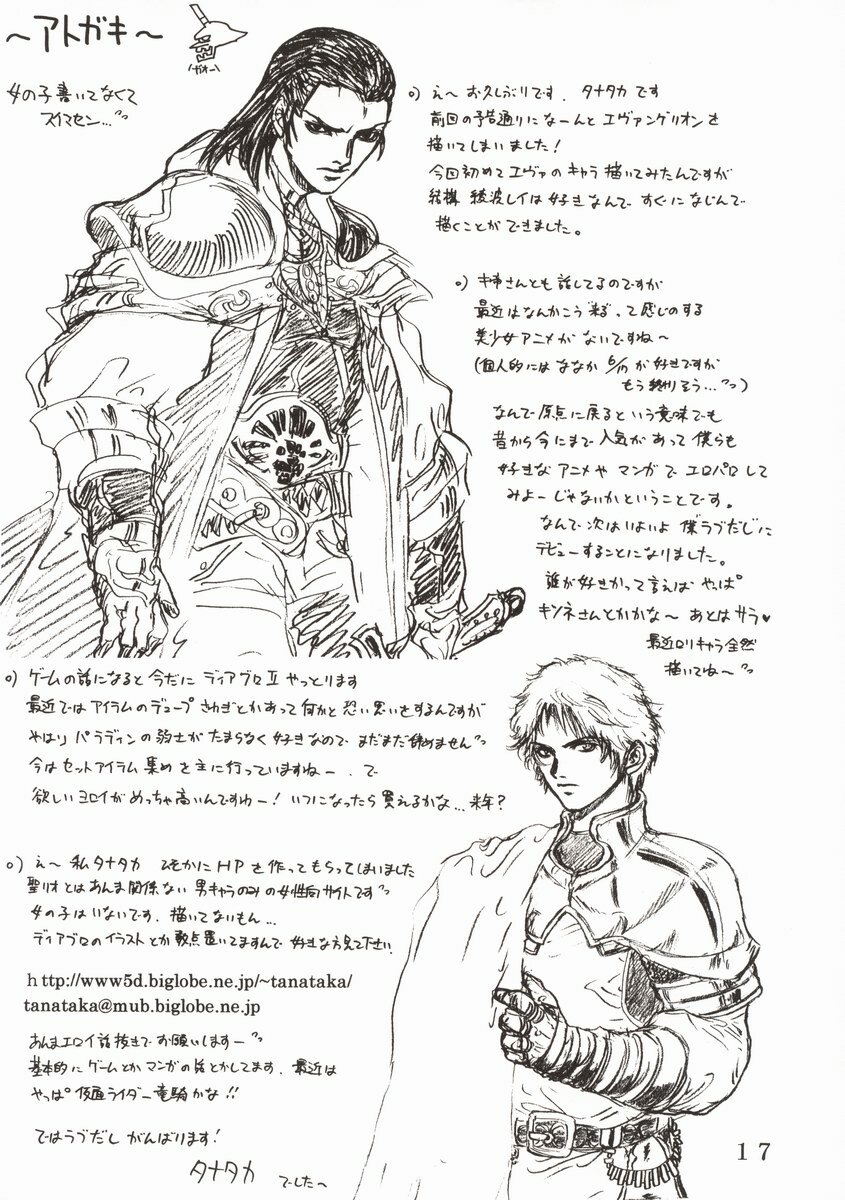 ～アトガキ～
ガオー
女の子書いてなくて
スイマセン…
o) え～ お久しぶりです．タナタカ です
前回の予告通りに なーんと エヴァンゲリオン を
描いてしまいました!
今回初めて エヴァの キャラ 描いてみたんですが
結構 綾波レイは 好き なんで すぐに なじんで
描くことが できました。
o) 姉さんとも 話してるのですが
最近は なんかこう"来る"って 感じのする
美少女アニメが ないですね～
(個人的には ななか 6/17 が 好きですが
もう終りそう…)
なんで 原点に戻る という 意味でも
昔から 今にまで 人気が あって 僕らも
好きな アニメや マンガ で エロパロ して
みよー じゃないか ということ です。
なんで 次は いよいよ 僕ラブだじ に
デビューすることに なりました。
誰が好きかって 言えば やっぱ
キツネさんとかかな～ あとは サラ♥
最近ロリキャラ全然
描いてね～
o) ゲームの話になると 今だに ディアブロⅡ やっとります
最近では アイテムの デュープ さわぎとか あって 何かと 恐い思いを するんですが
やはり パラディンの 騎士が たまらなく 好きなので まだまだ 辞めません
今は セットアイテム 集め を 主に 行っていますねー．で
欲しい ヨロイが めっちゃ 高いんですわー! いつになったら 買えるかな…来年?
o) え～ 私 タナタカ ひそかに HP を 作って もらって しまいました
聖リオとは あんま関係ない 男キャラのみ の 女性向サイトです
女の子は いないです．描いてないもん…
ディアブロの イラスト とか 数点 置いてますんで 好きな方見て下さい．
http://www5d.biglobe.ne.jp/~tanataka/
tanataka@mub.biglobe.ne.jp
あんま エロイ話 抜きで お願いしますー
基本的に ゲームとか マンガの 話とかしてます．最近は
やっぱ 仮面ライダー 竜騎かな!!
では ラブだし がんばります!
タナタカ でした～
17